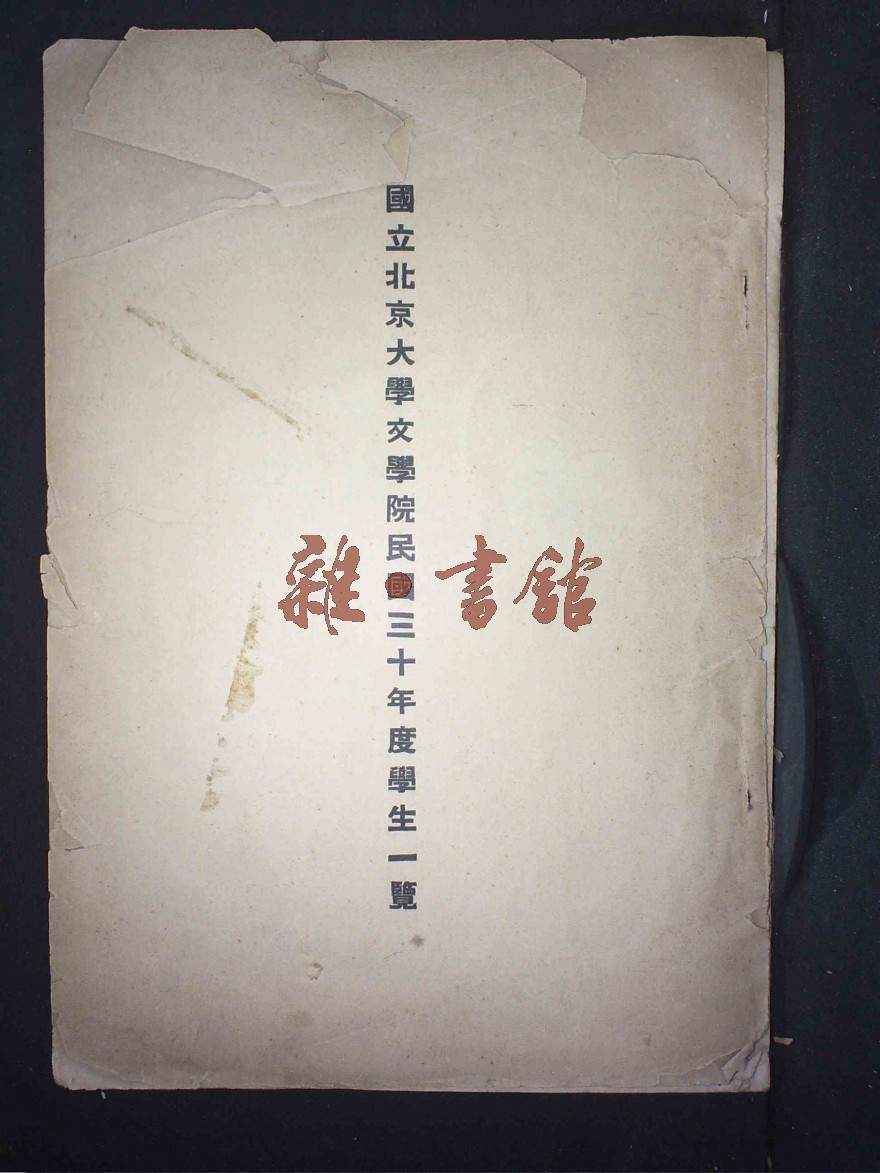 國立北京大學文學院民國三十年度學生一覽
雜書館